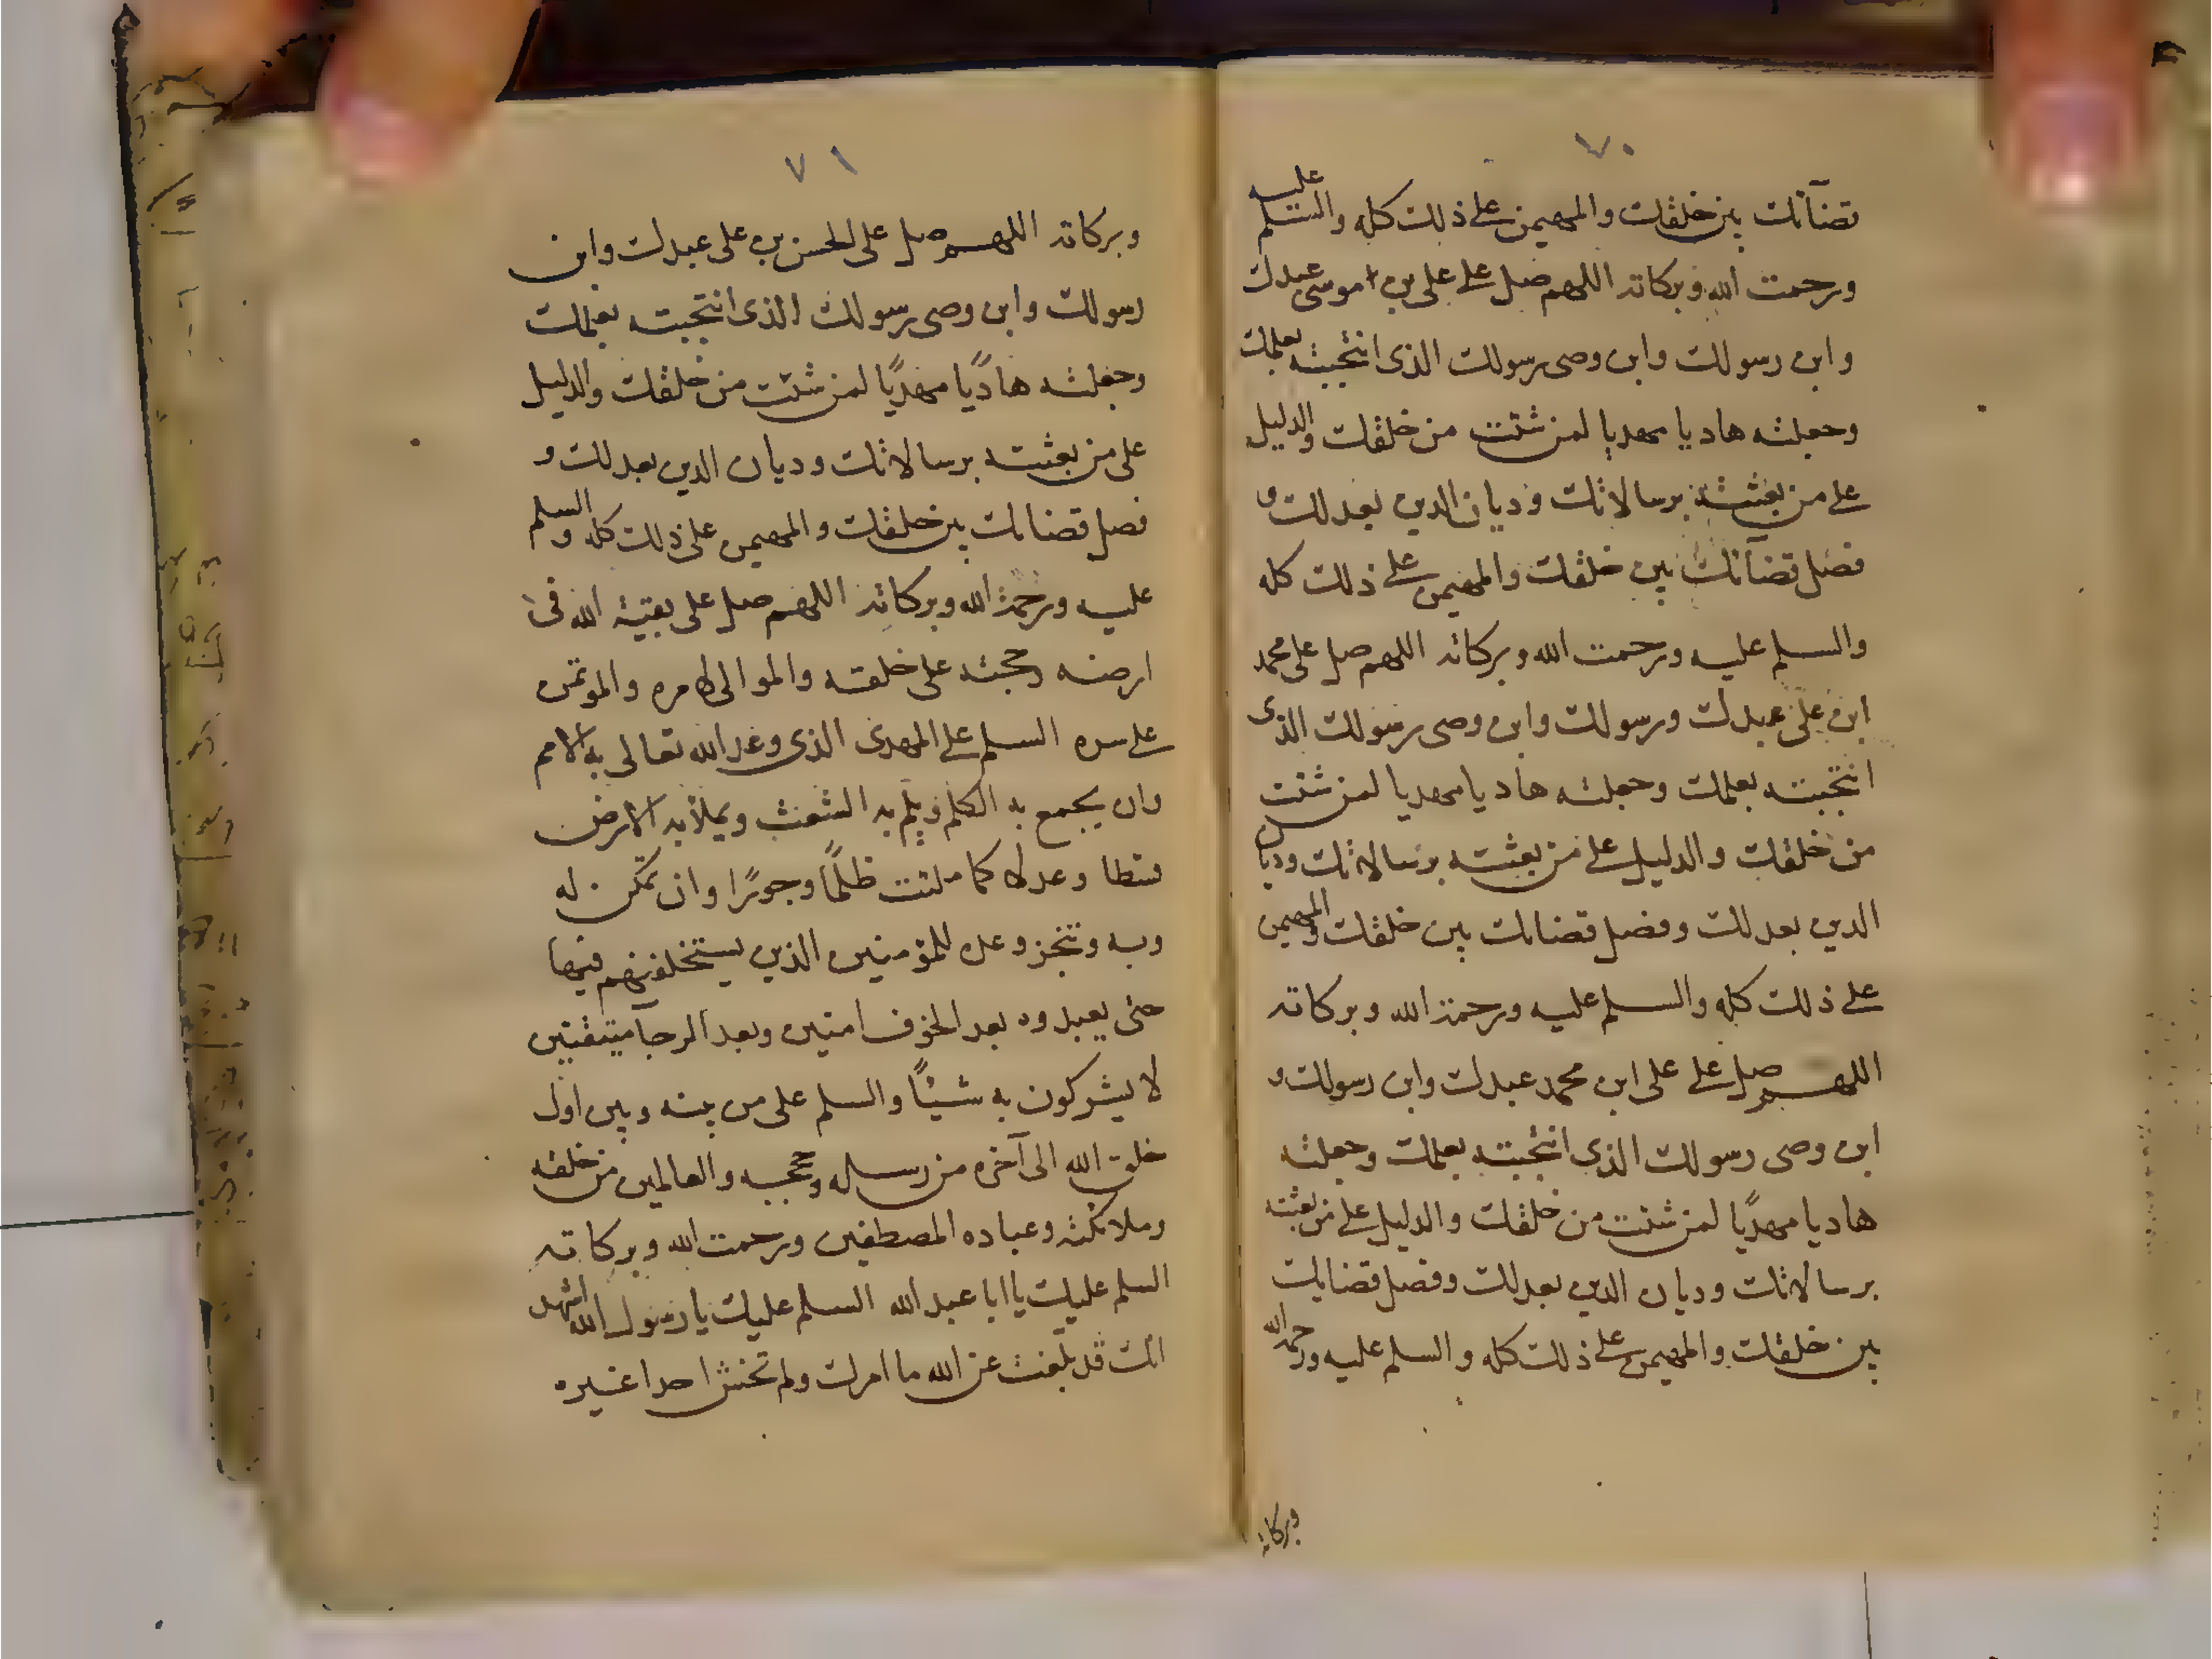 ٧٠
قضآئك بين خلقك والمهيمن على ذلك كله والسلم عليه
ورحمت الله وبركاته اللهم صل على على بن موسى عبدك
وابن رسولك وابن وصى رسولك الذى انتجبته بعلمك
وجعلته هاديا مهديا لمن شئت من خلقك والدليل
على من بعثته برسالاتك وديان الدين بعدلك و
فصل قضآئك بين خلقك والمهيمن على ذلك كله
والسلم عليه ورحمت الله وبركاته اللهم صل على محمد
ابن على عبدك ورسولك وابن وصى رسولك الذى
انتجبته بعلمك وجعلته هاديا مهديا لمن شئت
من خلقك والدليل على من بعثته برسالاتك وديان
الدين بعدلك وفصل قضائك بين خلقك والمهيمن
على ذلك كله والسلم عليه ورحمة الله وبركاته
اللهم صل على على ابن محمد عبدك وابن رسولك و
ابن وصى رسولك الذى انتجبته بعلمك وجعلته
هاديا مهديًا لمن شئت من خلقك والدليل على من بعثته
برسالاتك وديان الدين بعدلك وفصل قضائك
بين خلقك والمهيمن على ذلك كله والسلم عليه ورحمة الله
وبركاته
٧١
وبركاته اللهم صل على الحسن بن على عبدك وابن
رسولك وابن وصى رسولك الذى انتجبته بعلمك
وجعلته هاديًا مهديًا لمن شئت من خلقك والدليل
على من بعثته برسالاتك وديان الدين بعدلك و
فصل قضائك بين خلقك والمهيمن على ذلك كله والسلم
عليه ورحمة الله وبركاته اللهم صل على بقية الله فى
ارضه وحجته على خلقه والموالى لامره والموتمن
على سره السلم على المهدى الذى وعد الله تعالى به الامم
وان يجمع به الكلم ويلم به الشعث ويملأ به الارض
قسطا وعدلا كما ملئت ظلمًا وجورًا وان تمكن له
وبه وتنجز وعده للمؤمنين الذين ليستخلفنهم فيها
حتى يعبدوه بعد الخوف امنين وبعد الرجآ متيقنين
لا يشركون به شيئًا والسلم على من بينه وبين اول
خلق الله الى آخره من رسله وحججه والعالمين من خلقه
وملائكته وعباده المصطفين ورحمت الله وبركاته
السلم عليك يا ابا عبد الله السلم عليك يا رسول الله اشهد
انك قد بلغت عن الله ما امرك ولم تخش احدا غيره